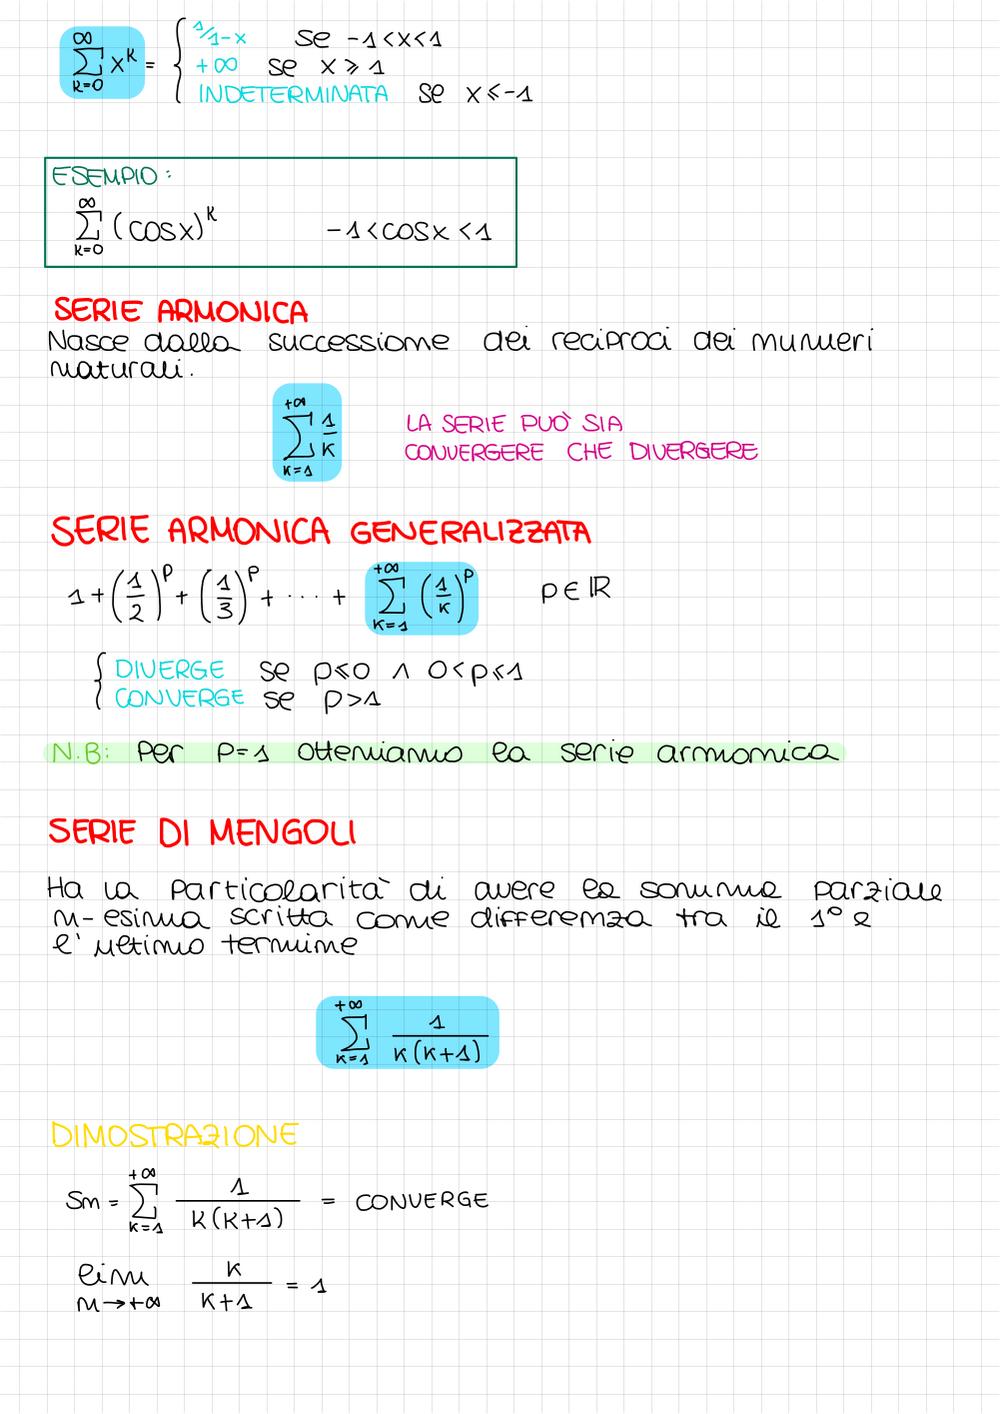 ∞
∑ xᴷ = { 1/1-x se -1<x<1
K=0
+∞ se x ⩾ 1
INDETERMINATA se x ⩽ -1
ESEMPIO:
∞
∑ (cosx)ᴷ -1<cosx<1
K=0
SERIE ARMONICA
Nasce dalla successione dei reciproci dei numeri
naturali.
+∞
∑ 1/K
K=1
LA SERIE PUÒ SIA
CONVERGERE CHE DIVERGERE
SERIE ARMONICA GENERALIZZATA
1+(1/2)ᵖ+(1/3)ᵖ+ ··· +
+∞
∑ (1/K)ᵖ p∈ℝ
K=1
{ DIVERGE se p⩽0 ∧ 0<p⩽1
CONVERGE se p>1
N.B: Per P=1 otteniamo la serie armonica
SERIE DI MENGOLI
Ha la particolarità di avere la somma parziale
n-esima scritta come differenza tra il 1° e
l'ultimo termine
+∞
∑ 1/K(K+1)
K=1
DIMOSTRAZIONE
+∞
Sn = ∑ 1/K(K+1) = CONVERGE
K=1
lim K/K+1 = 1
n→+∞